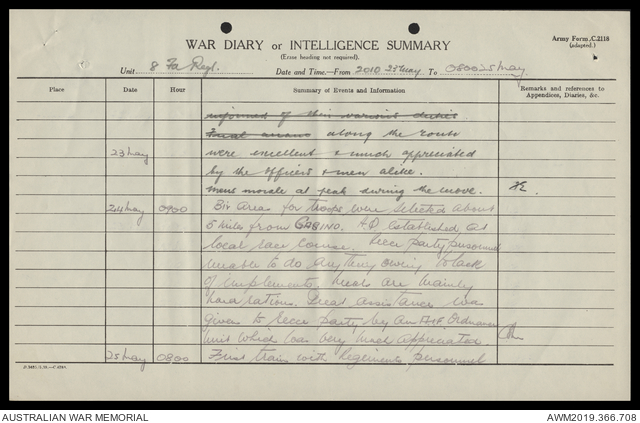 Army Form C.2118
(adapted.)
WAR DIARY or INTELLIGENCE SUMMARY
(Erase heading not required).
Unit 8 Fd Regt. Date and Time—From 2010 23 May To 0800 25 May.
Place Date Hour Summary of Events and Information Remarks and references to Appendices, Diaries, &c.
informed of their various duties
along the route
23 May were excellent & much appreciated
by the officers & men alike.
Mens morale at peak during the move.
24 May 0900 Biv Areas for troops were selected about
5 miles from GABINO. H.Q. established at
local race course. Recce party personnel
unable to do anything owing to lack
of implements. Meals are mainly
hard rations. Great assistance was
given to recce party by an A.I.F. Ordnance
unit which was very much appreciated
25 May 0800 First train with Regiments personnel
AUSTRALIAN WAR MEMORIAL AWM2019.366.708